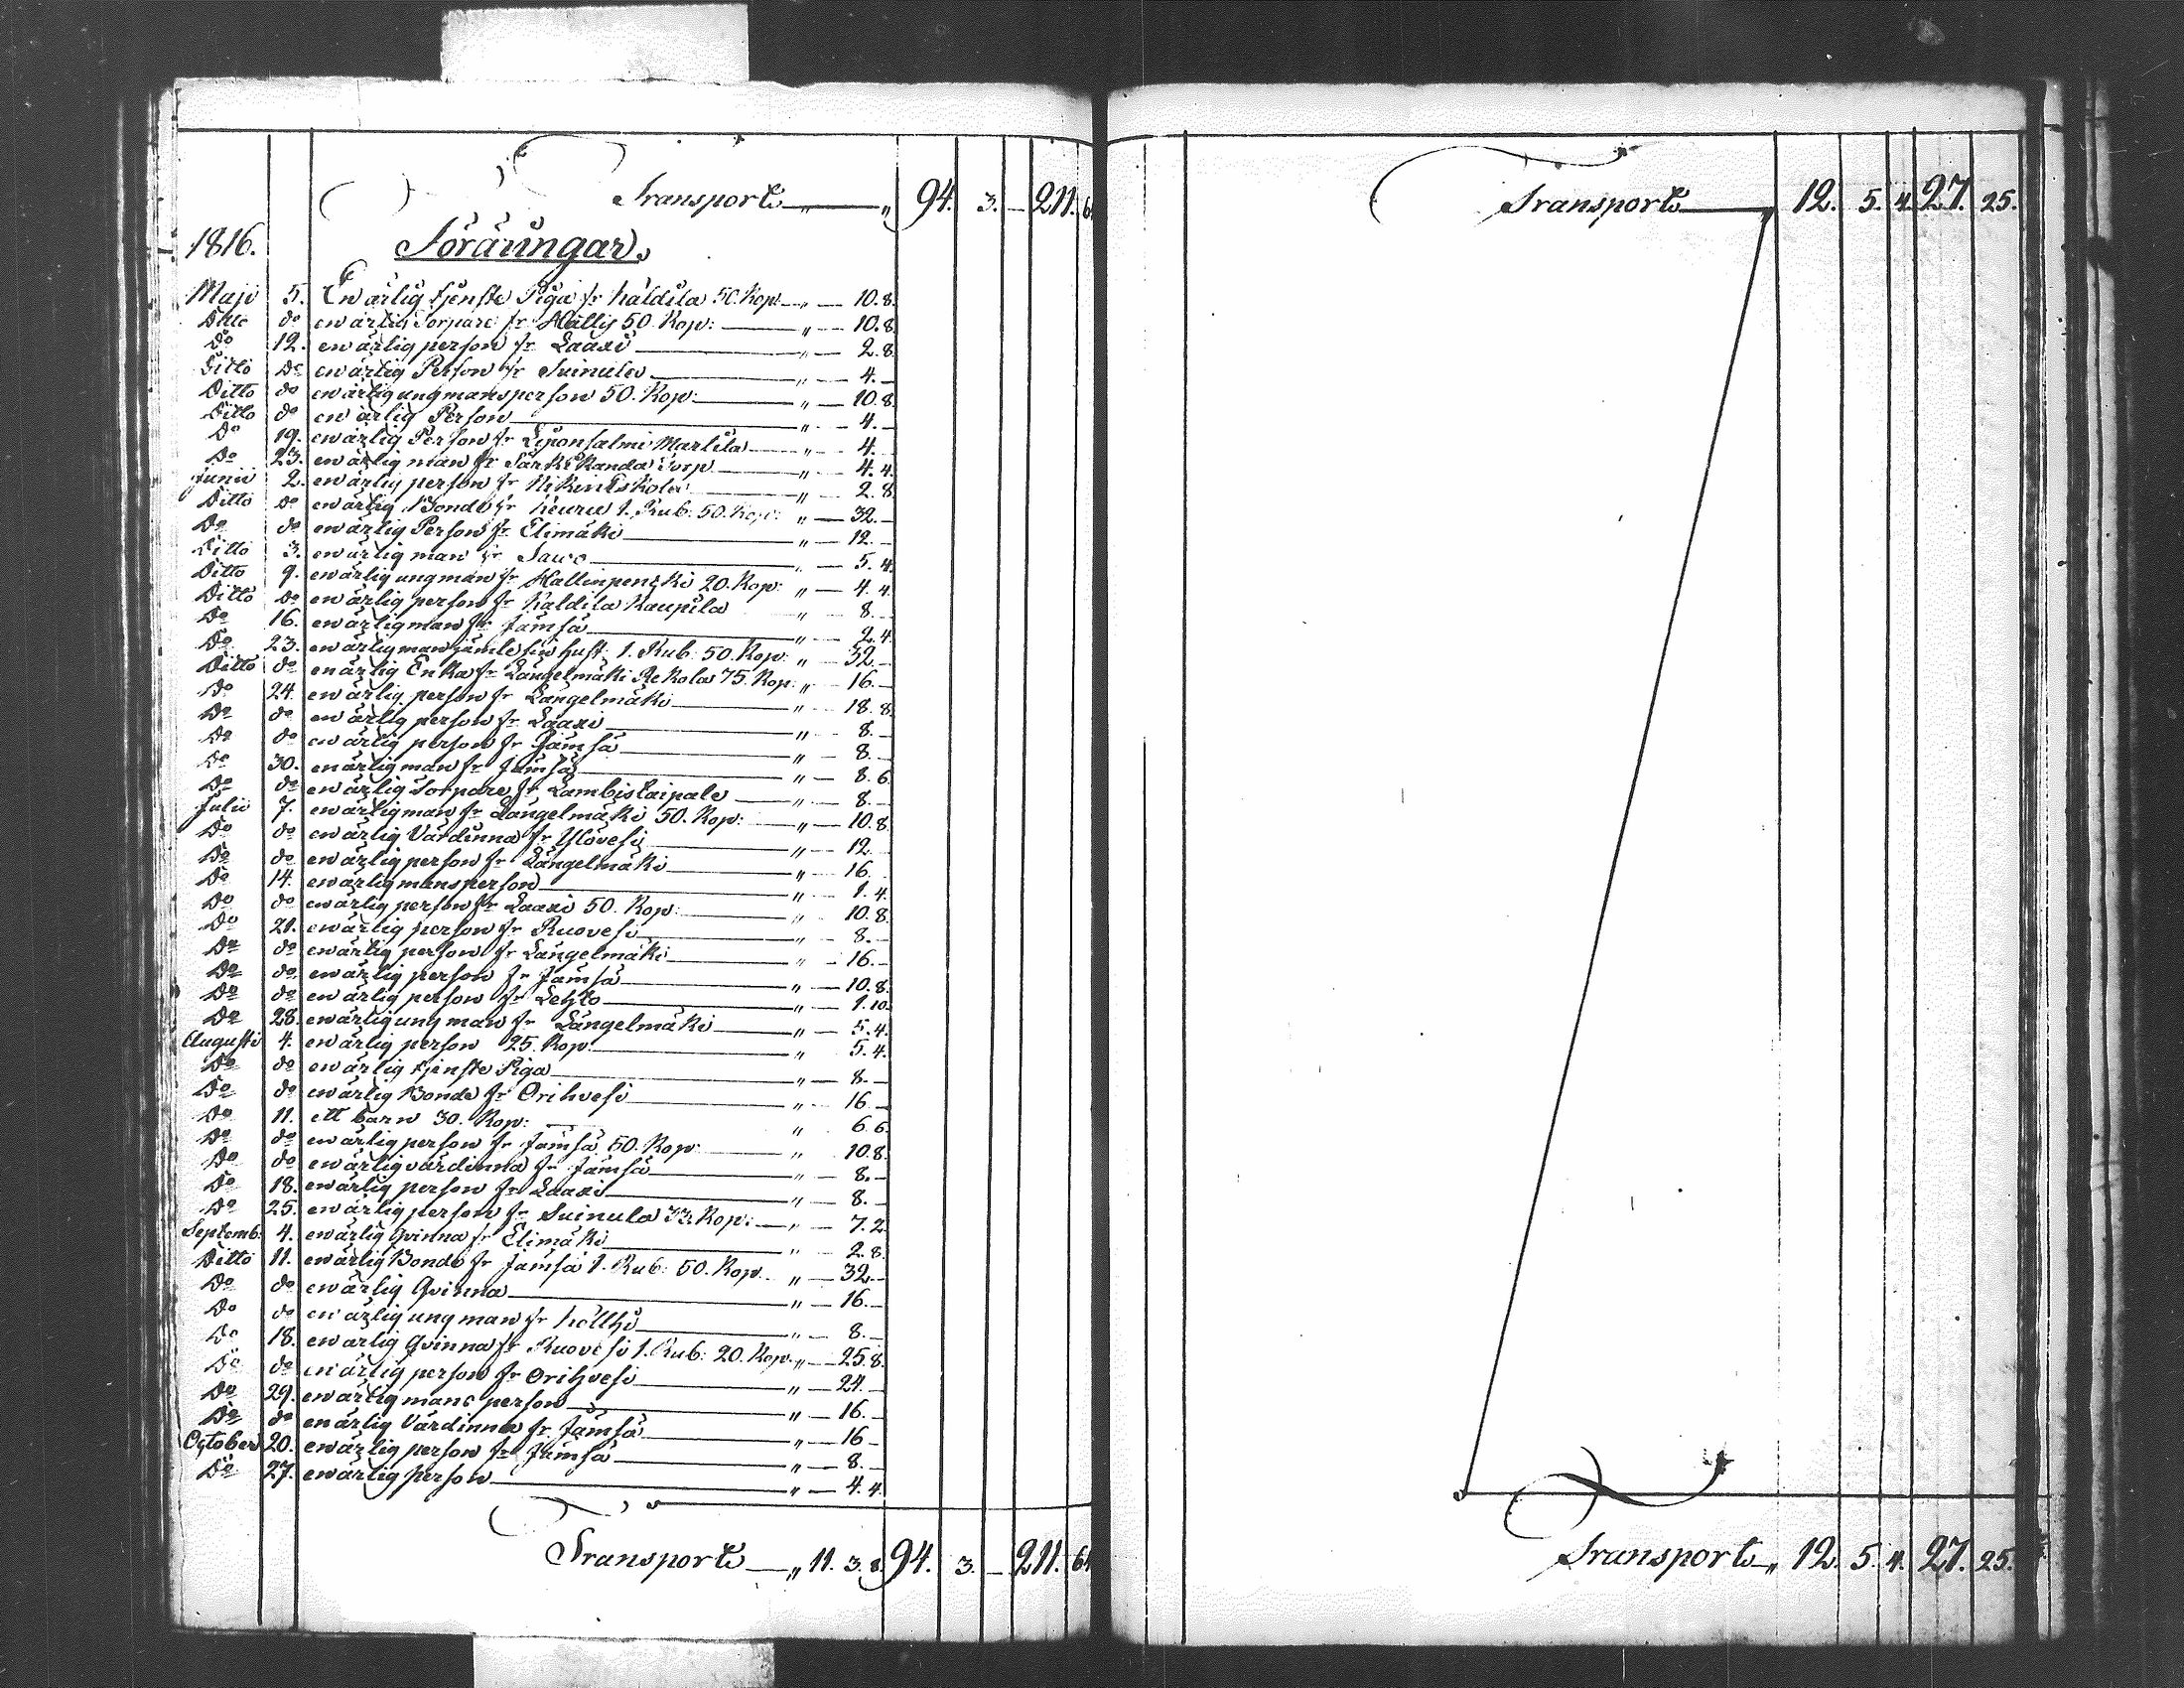 Transport " 94. 3. — 211. 64
1816. Föräringar.
Maji 5. En ärlig tjenste Piga fr Kaldila 50. Kop. " — 10. 8.
Ditto do en ärlig Torpare fr Hallis 50. Kop: " — 10. 8
Do 12. en ärlig person fr Laaxi " — 2. 8.
Ditto Do en ärlig Person fr Suinula " — 4. —
Ditto do en ärlig ungmansperson 50. Kop: " — 10. 8
Ditto do en ärlig Person " — 4. —
Do 19. en ärlig Person fr Liponsalmi Martila " — 4. —
Do 23. en ärlig man fr Särkikanda Torp " — 4. 4.
Junii 2. en ärlig person fr " — 2. 8
Ditto Do en ärlig Bonde fr Keuru 1. Rub: 50. Kop: " — 32. —
Do do en ärlig Person fr Elimäki " — 12. —
Ditto 3. en ärlig man fr " — 5. 4.
Ditto 9. en ärlig ungman fr Hallinpenki 20. Kop: " — 4. 4.
Ditto Do en ärlig person fr Kaldila Kaupila " — 8. —
Do 16. en ärlig man fr Jämsä " — 2. 4.
Do 23. en ärlig man jämte sin hust: 1. Rub: 50. Kop: " — 32. —
Ditto do en ärlig Enka fr Längelmäki Rekola 75. Kop: " — 16. —
Do 24. en ärlig person fr Längelmäki " — 18. 8.
Do do en ärlig person fr Laaxi " — 8. —
Do do en ärlig person fr Jämsä " — 8. —
Do 30. en ärlig man fr Jämsä " — 8. 6
Do do en ärlig Torpare fr Lambistaipale " — 8. —
Julii 7. en ärlig man fr Längelmäki 50. Kop: " — 10. 8
Do do en ärlig Värdinna fr Ylövesi " — 12. —
Do do en ärlig person fr Längelmäki " — 16. —
Do 14. en ärlig mansperson " — 1. 4.
Do do en ärlig person fr Laaxi 50. Kop: " — 10. 8.
Do 21. en ärlig person fr Ruovesi " — 8. —
Do do en ärlig person fr Längelmäki " — 16. —
Do do en ärlig person fr Jämsä " — 10. 8.
Do do en ärlig person fr Lehto " — 1. 10.
Do 28. en ärlig ung man fr Längelmäki " — 5. 4.
Augusti 4. en ärlig person 25. Kop: " — 5. 4.
Do do en ärlig tjenste Piga " — 8. —
Do do en ärlig Bonde fr Orihvesi " — 16. —
Do 11. ett barn 30. Kop: " 6. 6.
Do do en ärlig person fr Jämsä 50. Kop: " 10. 8.
Do do en ärlig värdinna fr Jämsä " — 8. —
Do 18. en ärlig person fr Laaxi " — 8. —
Do 25. en ärlig person fr Suinula 33. Kop: " — 7. 2.
Septemb: 4. en ärlig Qvinna fr Elimäki " — 2. 8.
Ditto 11. en ärlig Bonde fr Jämsä 1. Rub: 50. Kop. " — 32. —
Do do en ärlig Qvinna " — 16. —
Do do en ärlig ung man fr " — 8. —
Do 18. en ärlig Qvinna fr Ruovesi 1. Rub: 20. Kop. " — 25. 8.
Do do en ärlig person fr Orihvesi " — 24. —
Do 29. en ärlig mans person " — 16. —
Do do en ärlig Värdinna fr Jämsä " — 16 —
October 20. en ärlig person fr Jämsä " — 8. —
Do 27. en ärlig person " — 4. 4.
Transport " 11. 3. 8. 94. 3. — 211. 64
Transport " 12. 5. 4. 27. 25.
Transport " 12. 5. 4. 27. 25.